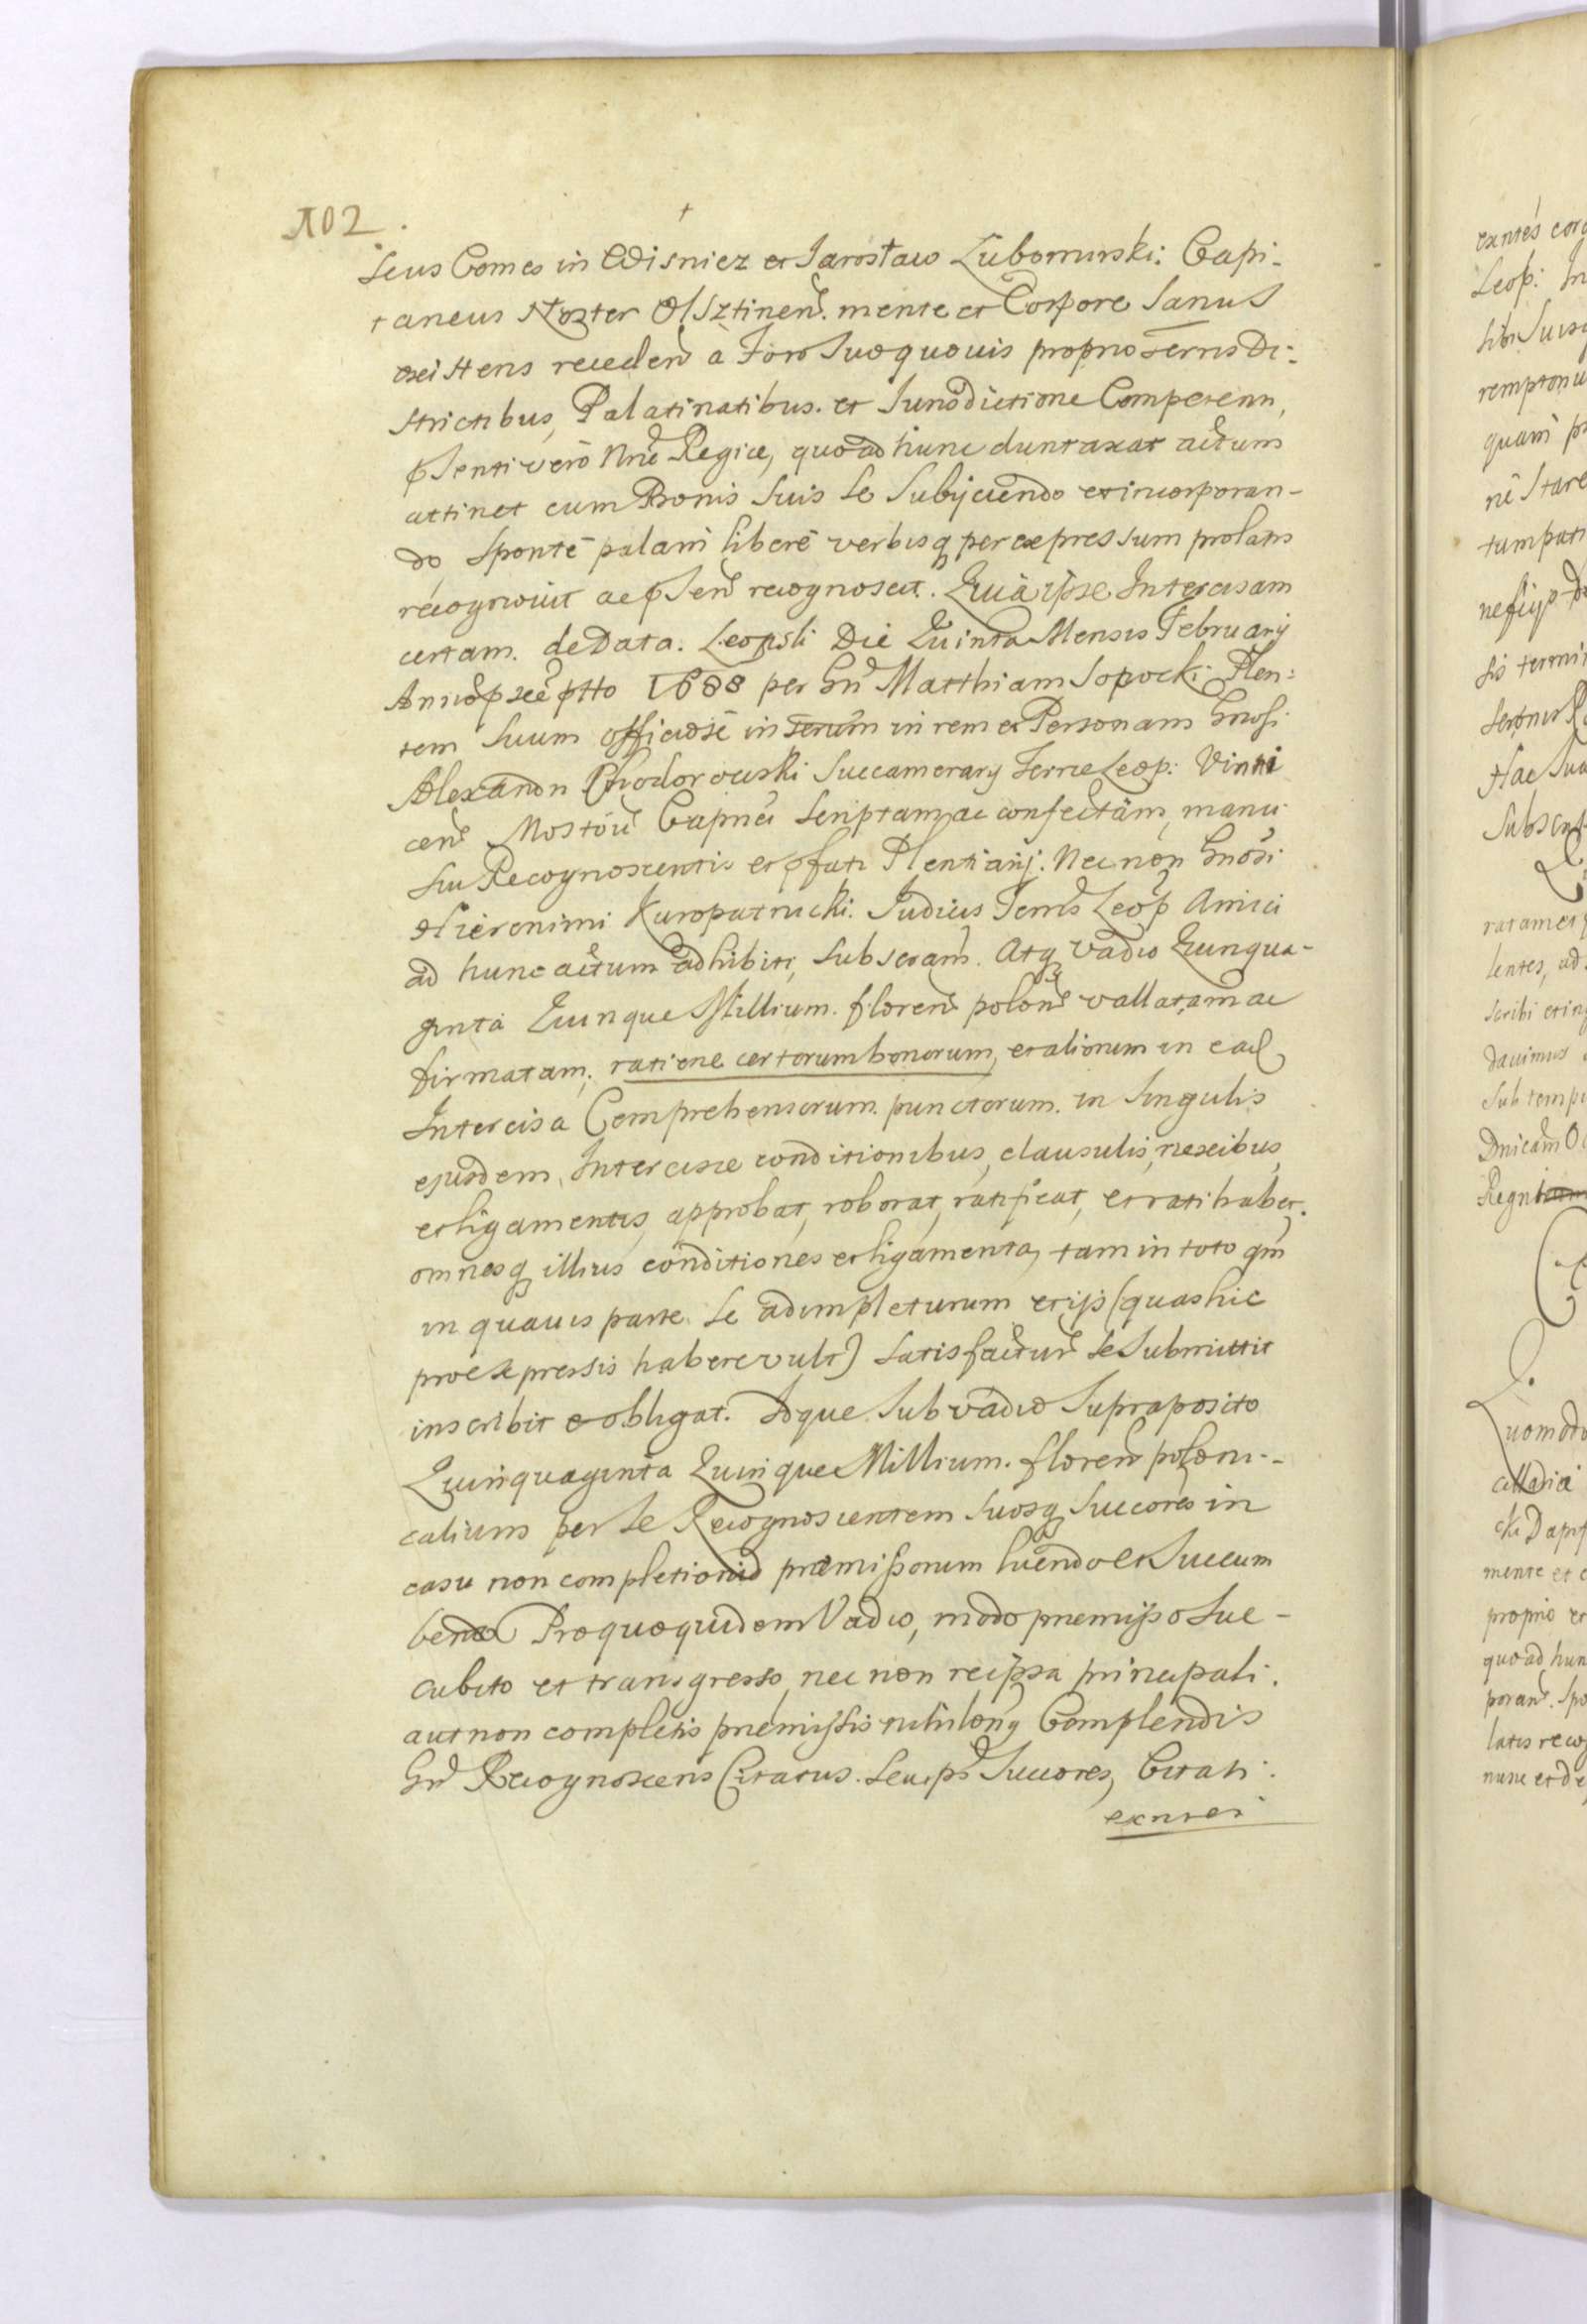 102.
seus Comes in Wisnicz et Jarosław Lubomirski: Capi-
taneus Noster Olsztinen. mente et Corpore Sanus
existens receden à Foro Suo quovis proprio terris Di-
strictibus, Palatinatibus. et Jurisdictione Competenti,
pńsenti verò Nrae Regiae, quo ad hunc duntaxat actum
attinet cum Bonis Suis Se Subijciendo et incorporan-
do Spontè palam liberè verbisq per expressum prolatis
recognovit ac pńsen recognoscit. Quià ipse Intercisam
certam. de Data. Leopoli Die Quinta Mensis February
1688 per Gn Matthiam Sopocki Plen:
tem Suum officiosè in rem et Personam Gnosi
Alexandri Chodorowski Succamerary Terrae Leop:
Mostow Capnei Scriptam ac confectam, manu
Sui Recognoscentis et pfati Plentiarij. Nec non Gnosi
Hieronimi Kuropatnicki. Judicis Terris Leop Amici
ad hunc actum adhibiti, Subscram. Atq vadio Quinqua-
ginta Quinque Millium. floren polon vallatam ac
firmatam; ratione certorum bonorum, et aliorum in ead
Intercisa Comprehensorum. punctorum. in Singulis
ejusdem, Intercisae conditionibus, clausulis, nexibus,
et ligamentis, approbat, roborat, ratificat, et ratihabet.
omnesq illius conditiones et ligamenta, tam in toto qm
in quavis parte Se adimpleturum et ijs (quas hic
pro expressis habere vult) Satisfactur Se Submittit
inscribit et obligat. Idque. Sub vadio Supraposito
Quinquaginta Quinque Millium. floren poloni-
calium per Se Recognoscentem Suosq Succores in
casu non completionis praemissorum luendo et Succum
bendo Pro quo quidem Vadio, modo praemisso Suc-
cubito et transgresso, nec non re ipsa principali.
aut non completis praemissis Complendis
Gn Recognoscens Citatus. Seu ps Succores, Citati.
exntes

exntes
Leop: In
sibi Suisq
quam
nè Stare
Sis termi
Hac
lentes, ad
scribi et in
davimus
Sub temp
Dnicam
Regni
Quomodo
mente et c
proprio et
quo ad hun
poran. Spo
latis recog
nunc et de